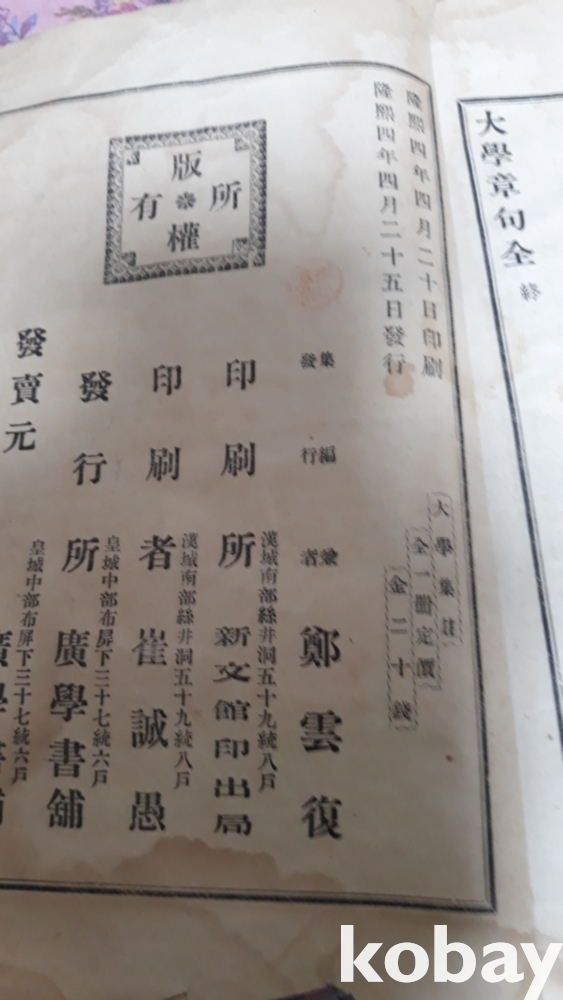 大學章句全 終
隆熙四年四月二十日印刷
隆熙四年四月二十五日發行
版權所有
大學集註
全一冊定價
金二十錢
集編兼
發行者 鄭雲復
漢城南部絲井洞五十九統八戶
印刷所 新文館印出局
漢城南部絲井洞五十九統八戶
印刷者 崔誠愚
皇城中部布屏下三十七統六戶
發行所 廣學書舖
皇城中部布屏下三十七統六戶
發賣元 廣學書舖
kobay